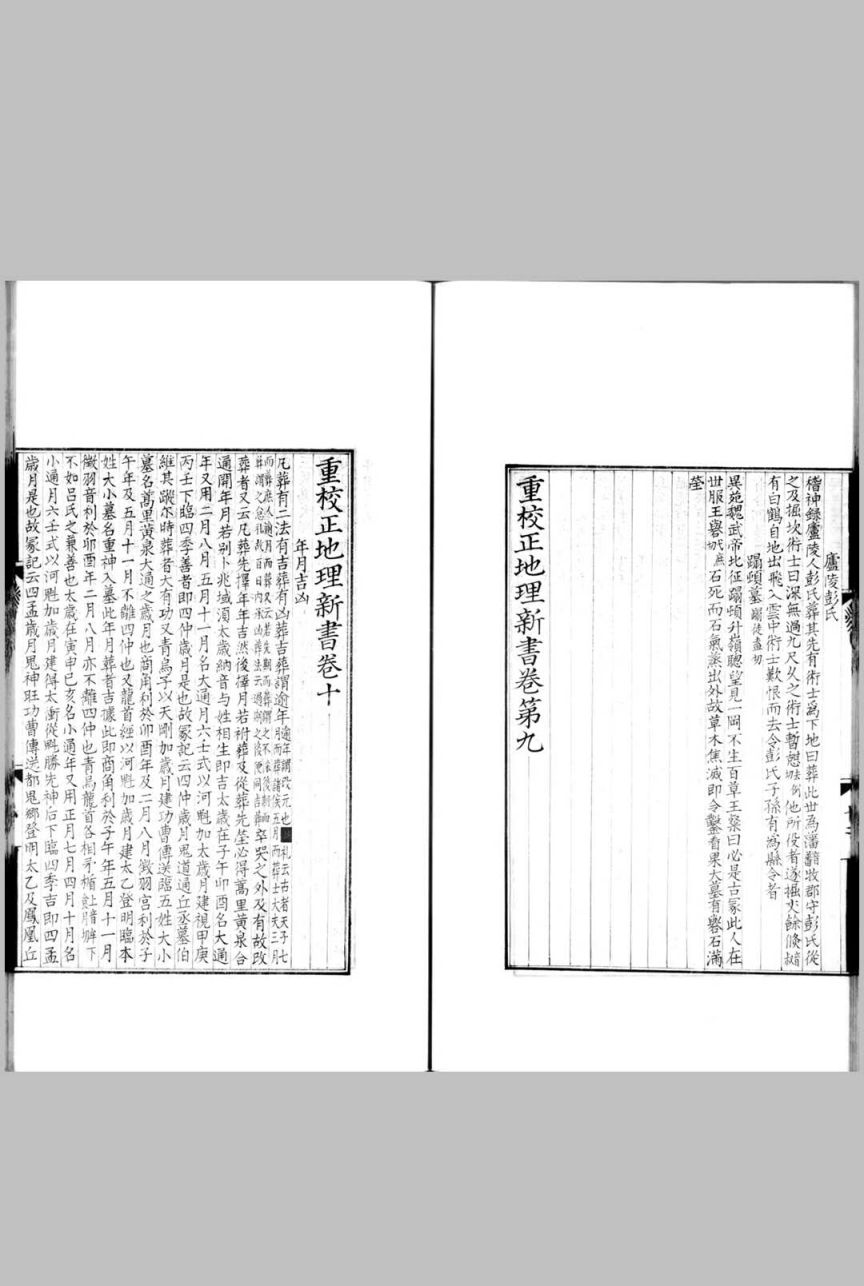 廬陵彭氏
稽神錄廬陵人彭氏葬其先有術士爲下地曰葬此世為藩牧郡守彭氏從
之及掘坎術士曰深無過九尺久之術士暫憇他所役者遂掘丈餘倏
有白鶴自地出飛入雲中術士歎恨而去今彭氏子孫有為縣令者
蹋頓墓
異苑魏武帝北征蹋頓升嶺聦望見一岡不生百草王粲曰必是古冢此人在
世服王礜石死而石氣蒸出外故草木焦滅即令鑿看果大墓有礜石滿
塋
重校正地理新書卷第九
重校正地理新書卷十
年月吉凶
凡葬有二法有吉葬有凶葬吉葬謂逾年逾年謂改元也礼云古者天子七
月而葬諸侯五月而葬士大夫三月
而葬庶人逾月而葬
葬者又云凡葬先擇年年吉然後擇月若祔葬及從葬先塋必得萬里黃泉合
通開年月若别卜兆域湏太歲納音与姓相生即吉太歲在子午卯酉名大通
年又用二月八月五月十一月名大通月六壬式以河魁加太歲月建視甲庚
丙壬下臨四季善者即四仲歲月是也故冢記云四仲歲月鬼道通丘丞墓伯
維其蹤尓時葬者大有功又青烏子以天剛加歲月建功曹傳送臨五姓大小
墓名萬里黃泉大通之歲月也商角利於卯酉年及二月八月徵羽宮利於子
午年及五月十一月不離四仲也又龍首經以河魁加歲月建太乙登明臨本
姓大小墓名重神入墓此年月葬者吉據此即商角利於子午年五月十一月
徵羽音利於卯酉年二月八月亦不離四仲也青烏龍首各相矛楯下
不如吕氏之兼善也太歲在寅申巳亥名小通年又用正月七月四月十月名
小通月六壬式以河魁加歲月建得太衝從魁勝先神后下臨四季吉即四孟
歲月是也故冢記云四孟歲月鬼神旺功曹傳送都鬼鄉登明太乙及鳳凰丘